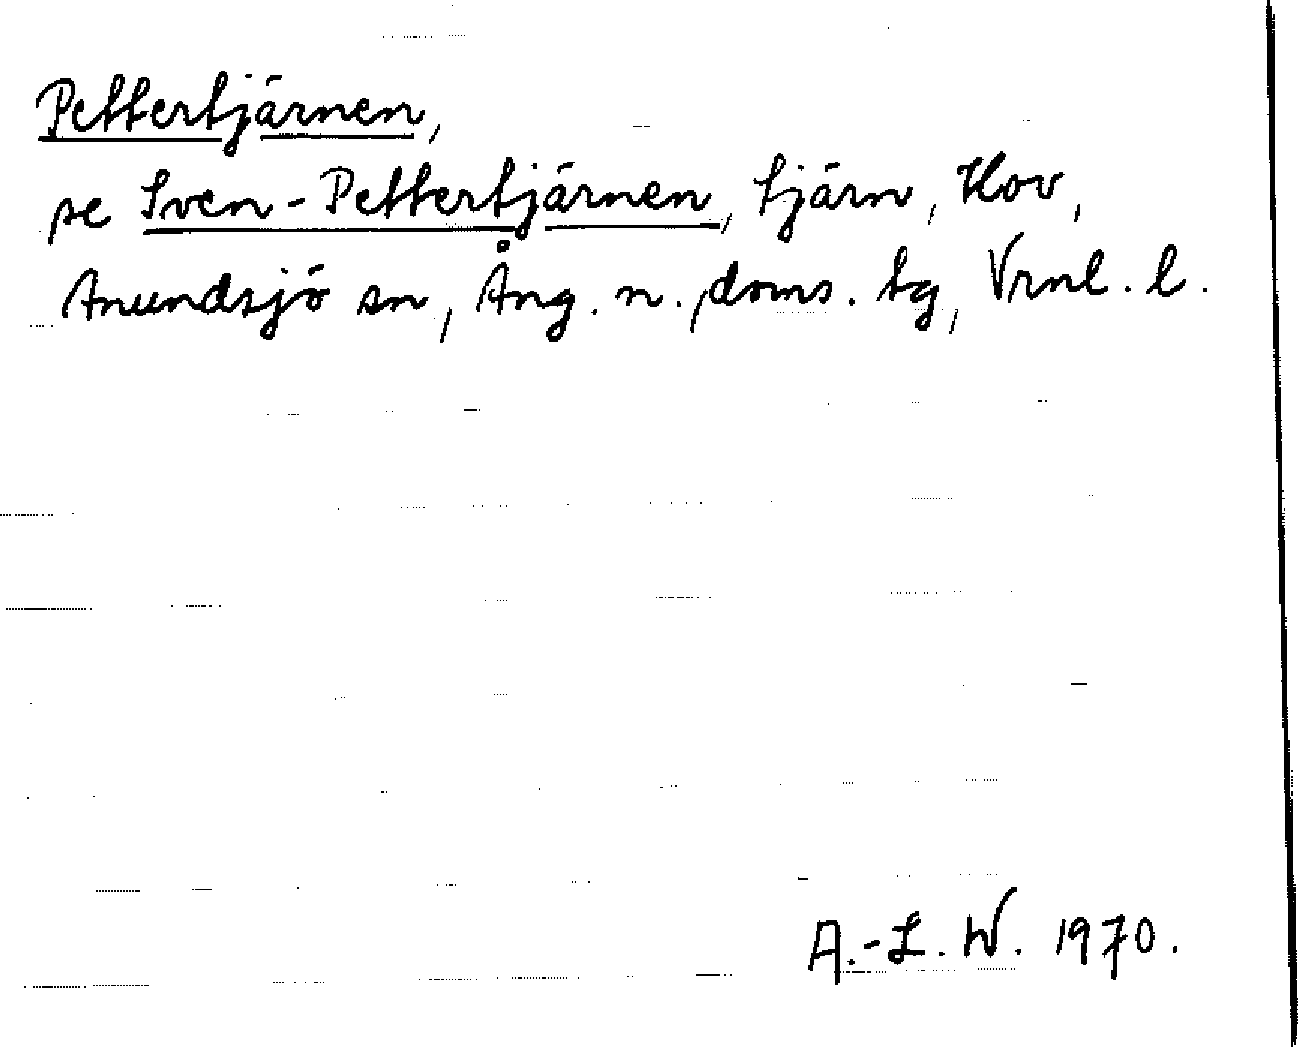 Pettertjärnen,
se Sven-Pettertjärnen, tjärn, Kov,
Anundsjö sn, Ång. n., doms. tg, Vrnl. l.
A.-L. W. 1970.